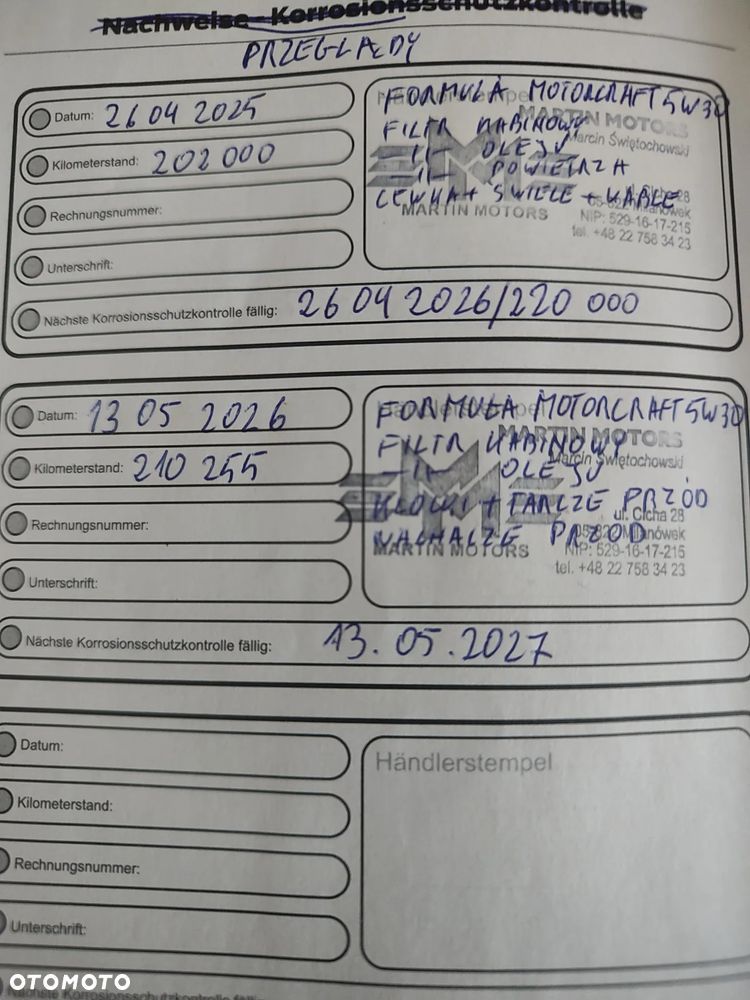 Nachweise - Korrosionsschutzkontrolle
PRZEGLĄDY
Datum: 26 04 2025
Kilometerstand: 202 000
Rechnungsnummer:
Unterschrift:
FORMUŁA MOTORCRAFT 5W30
FILTR KABINOWY
—||— OLEJU
—||— POWIETRZA
CEWKA + ŚWIECE + KABLE
MARTIN MOTORS
Marcin Świętochowski
ul. Cicha 28
05-822 Milanówek
NIP: 529-16-17-215
tel. +48 22 758 34 23
MARTIN MOTORS
Nächste Korrosionsschutzkontrolle fällig: 26 04 2026/220 000
Datum: 13 05 2026
Kilometerstand: 210 255
Rechnungsnummer:
Unterschrift:
FORMUŁA MOTORCRAFT 5W30
FILTR KABINOWY
—||— OLEJU
KLOCKI + TARCZE PRZÓD
WAHACZE PRZÓD
MARTIN MOTORS
Marcin Świętochowski
ul. Cicha 28
05-822 Milanówek
NIP: 529-16-17-215
tel. +48 22 758 34 23
MARTIN MOTORS
Nächste Korrosionsschutzkontrolle fällig: 13.05.2027
Datum:
Kilometerstand:
Rechnungsnummer:
Unterschrift:
Händlerstempel
Nächste Korrosionsschutzkontrolle fällig:
OTOMOTO